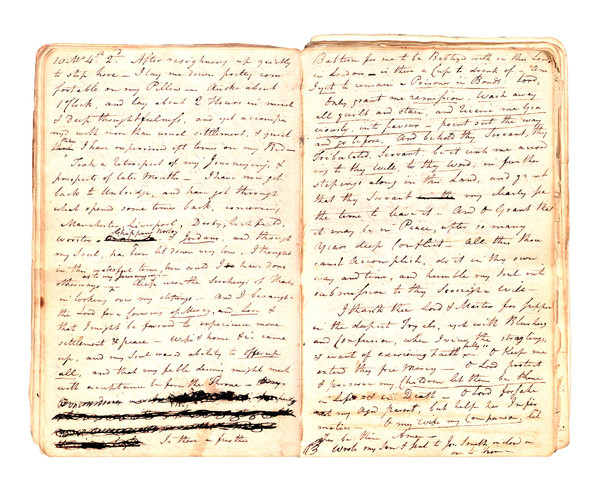 10 Mo 4th 2d. After resigning up quietly
to stop here – I lay me down pretty com
fortable on my Pillow – Awoke about
1 oClock, and lay about 2 Hours in much
& Deep thoughtfulness, and yet accompa
nyd with more than usual settlement, & quiet
than I have experienced oft times on my Bed –
Took a Retrospect of my Journeying, &
prospects of late Months – I have now got
back to Uxbridge, and have got through
what opened some time back, concerning
Manchester, Liverpool, Derby, Lichfield,
Worcester Chipping Norton & Jordans, and though
my Soul, has been bt down very low, I thought
in the wakeful time, how could I have done
otherways as to my Journeying – deep were the Searchings of Heart,
in looking over my steppings – And I besaught
the Lord for a Covering of Mercy, and Love &
that I might be favord to experience more
settlement & peace – Wife & home &c came
up, and my Soul had ability to offer up
all, and that my feble desires might meet
with acceptance before the Throne –
Is there a further
Baptism for me to be Baptized with in this Land
in London – is there a Cup to drink of – Am
I yet to remain a Prisoner in Bonds? Lord
only grant me remission Wash away
all guilt and stain, and Receive me Gra
ciously, into favour – point out the way
and go before, And behold thy Servant, thy
Tribulated, Servant, be it with me accord
ing to thy Will, to thy Word, in further
steppings along in this Land, and grant
that thy Servant may clearly see
the time to leave it – And O Grant that
it may be in Peace, after so many
Years deep Conflict – All this thou
canst Accomplish, do it in thy own
way and time, and humble my Soul into
submission to thy Sovereign Will –
I thank thee Lord & Master for support
in the deepest Trials, yet with Blushing
and Confusion, when I view the stragglings,
& want of exercising Faith – O Keep me
extend thy free Mercy – O Lord protect
& preserve my Children let them be thine
in Death – O Lord forsake
not my Aged parent, but help her Infir
mities – O my Wife my Companion, let
be thine Amen –
Wrote my Son &